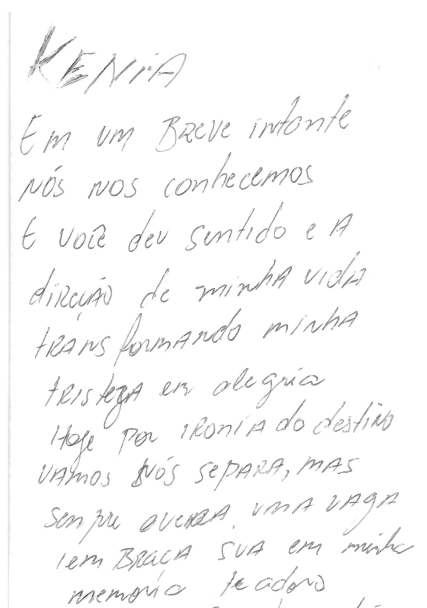 KENiA
Em um Breve intante
Nós nos conhecemos
E você deu sentido e A
direção de minha vida
trans formando minha
tristeza em alegria
Hoje por ironia do destino
vamos Nós separa, mas
sempre avera uma vaga
lem Braça sua em minha
memoria te adoro